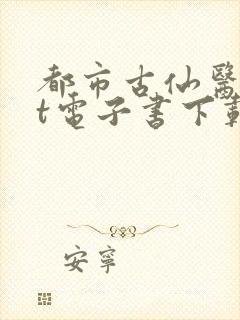 都市古仙醫
t電子書下載
安寧